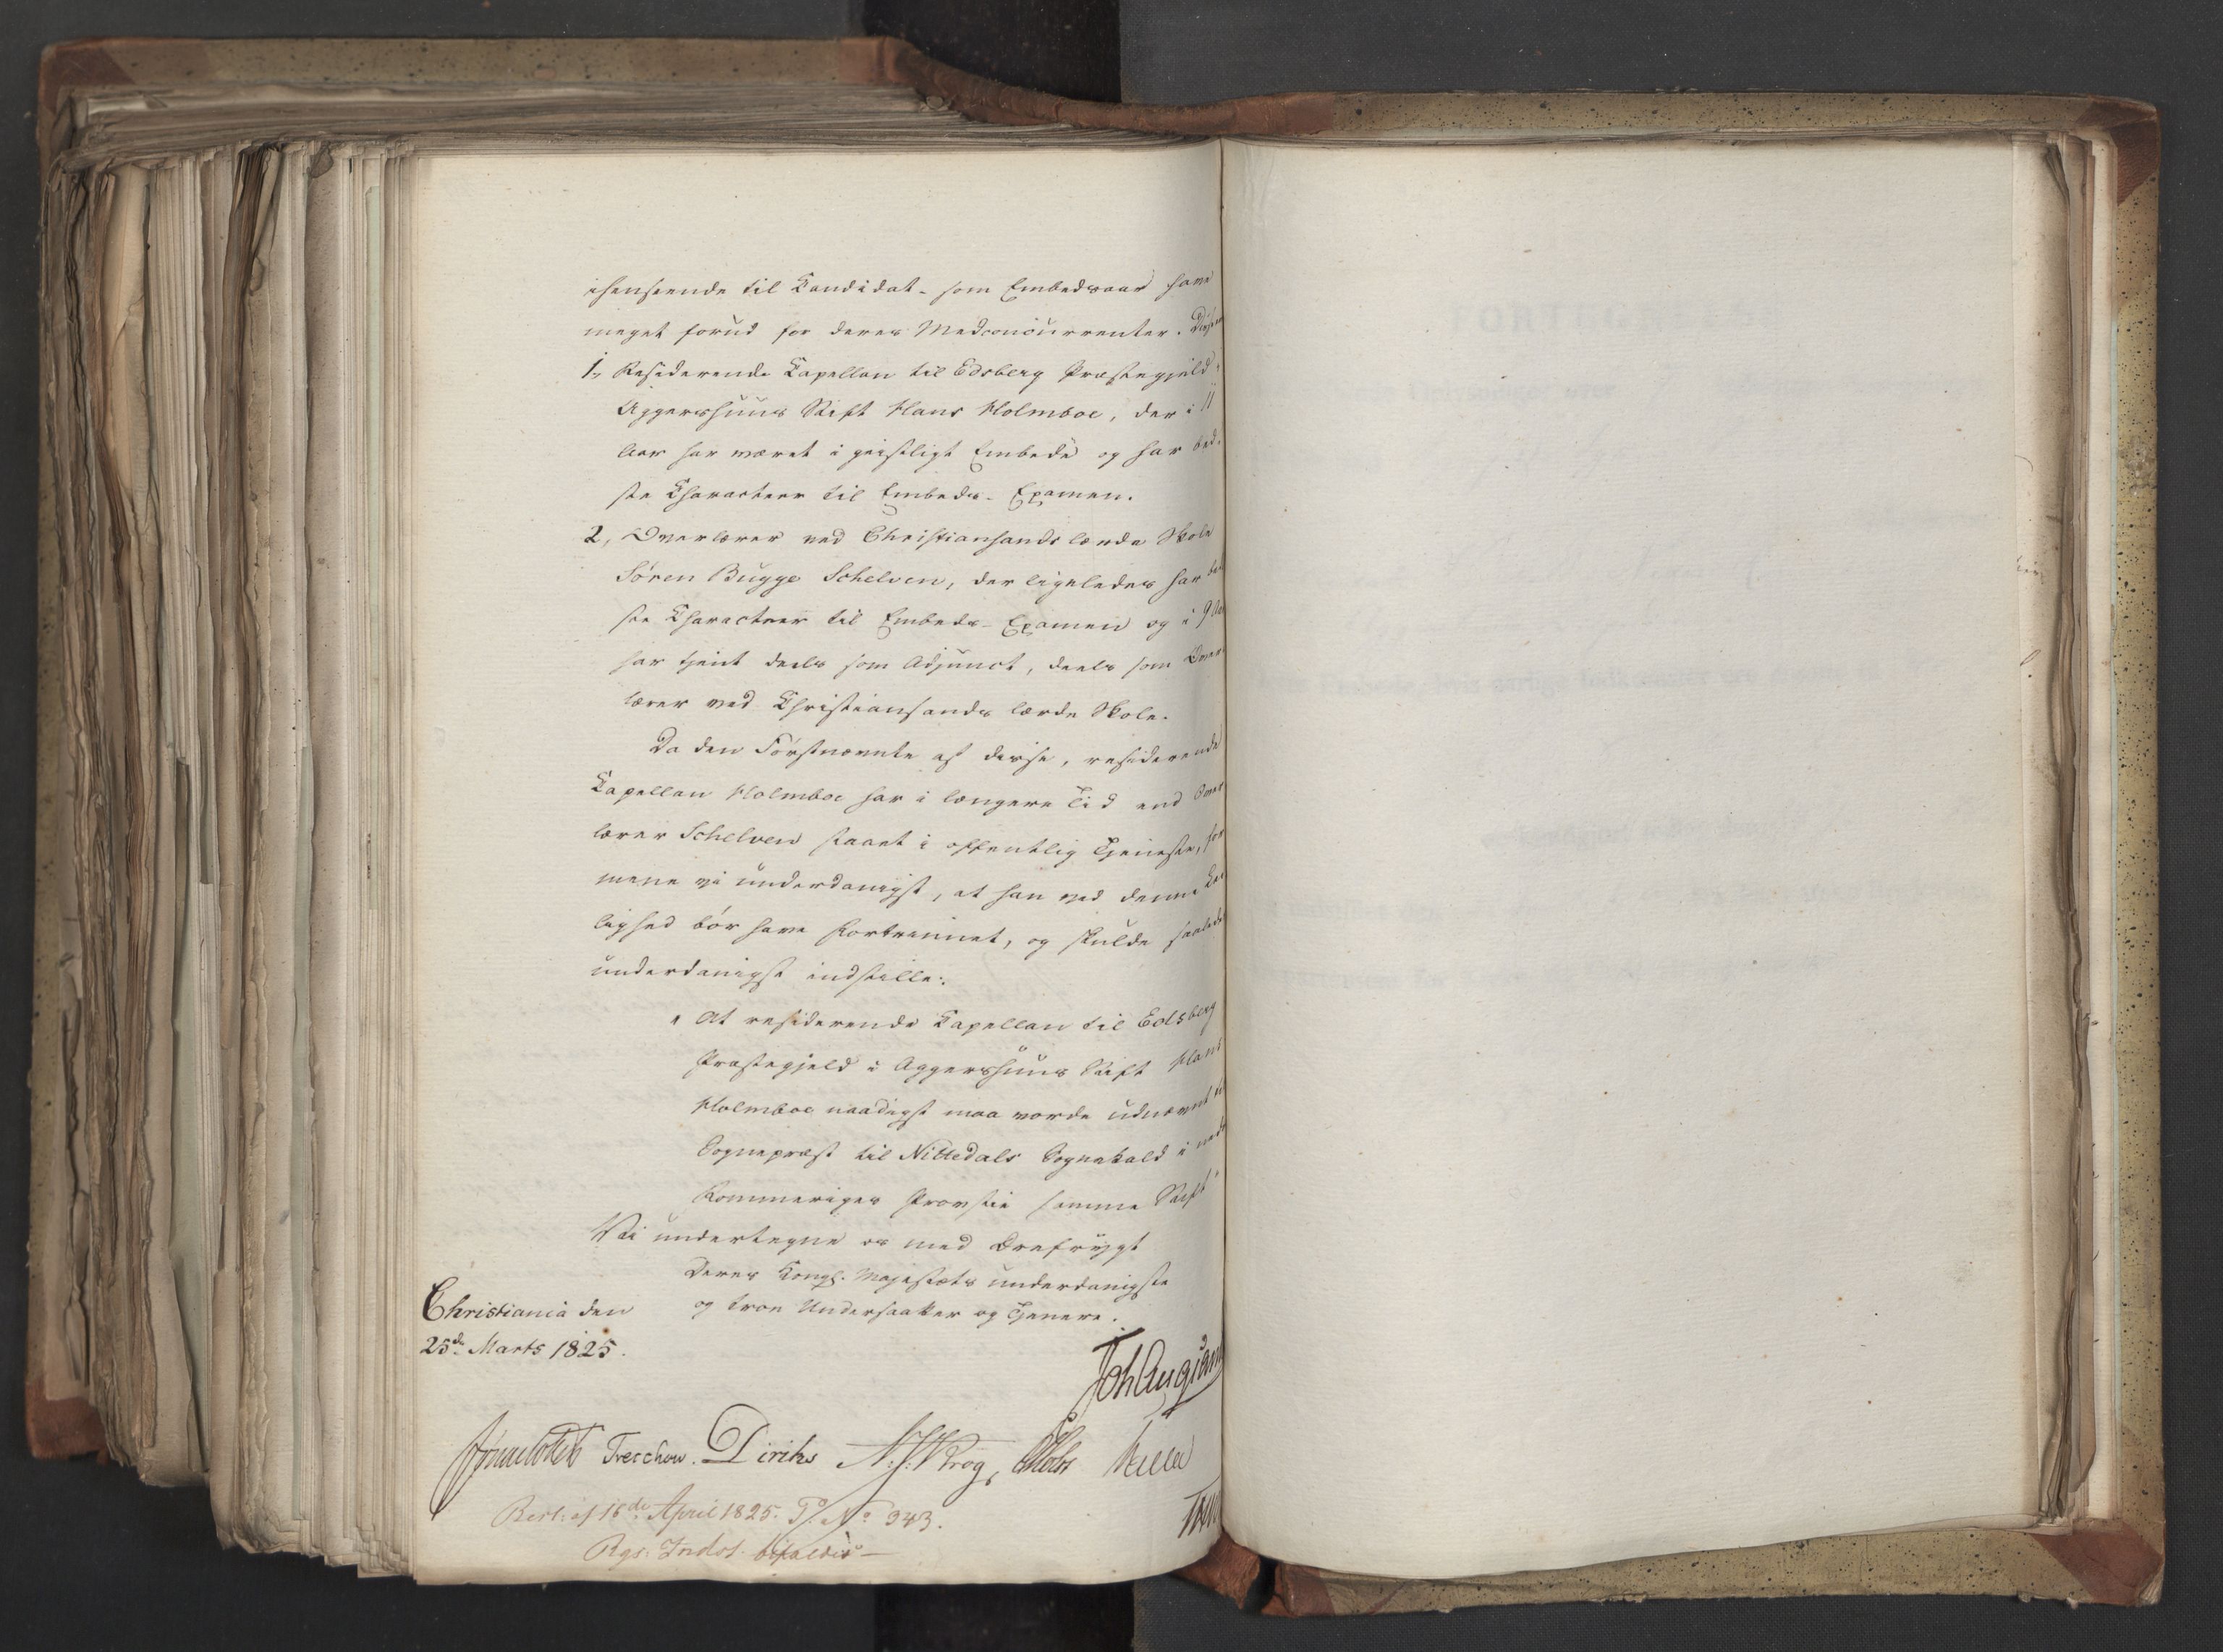 ihenseende til Candidat- som Embedsaar have
meget forud for deres Medconcurrenter. Disse
1, Residerende Capellan til Edsberg Præstegjeld i
Aggershuus Stift Hans Holmboe, der i 11
Aar har været i geistligt Embede og har bed-
ste Characteer til Embeds-Examen.
2, Overlærer ved Christiansands lærde Skole
Søren Bugge Schelven, der ligeledes har bed
ste Characteer til Embeds-Examen og i 9 Aar
har tjent deels som Adjunct, deels som Over-
lærer ved Christiansands lærde Skole.
Da den Førstnævnte af disse, residerende
Capellan Holmboe har i længere Tid end Over
lærer Schelven staaet i offentlig Tjeneste, for
mene vi underdanigst, at han ved denne Lei
lighed bør have Fortrinnet, og skulde saaledes
underdanigst indstille:
"At residerende Capellan til Edsberg
Præstegjeld i Aggershuus Stift Hans
Holmboe naadigst maa vorde udnævnt til
Sognepræst til Nittedals Sognekald i nedre
Rommeriges Provstie samme Stift"
Vi undertegne os med Ærefrygt
Deres Kongl. Majestæts underdanigste
og troe Undersaatter og Tjenere.
Christiania den
25de Marts 1825.
Treschow. Diriks N. J. Krog,
16de April 1825. No 343.
Rgs: Indst. bifaldes